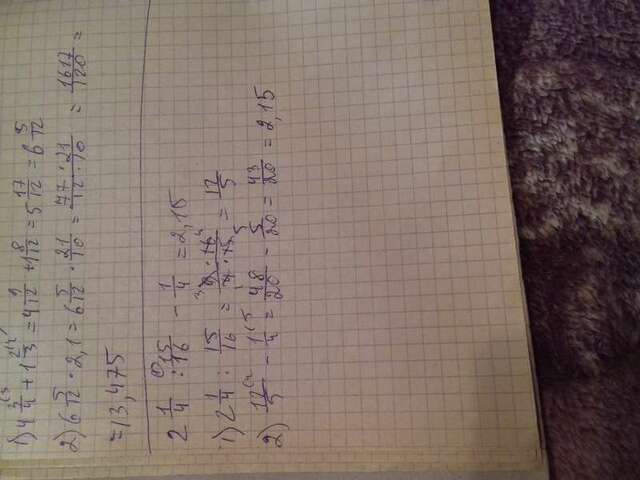 1) 4 3/4 (3 + 1 2/3 (4 = 4 9/12 + 1 8/12 = 5 17/12 = 6 5/12
2) 6 5/12 · 2,1 = 6 5/12 · 21/10 = 77 · 21/12 · 10 = 1617/120 =
= 13,475
2 1/4 : 15/16 - 1/4 = 2,15
1) 2 1/4 : 15/16 = 9 · 16/4 · 15 = 12/5
2) 12/5 (4 - 1/4 (5 = 48/20 - 5/20 = 43/20 = 2,15